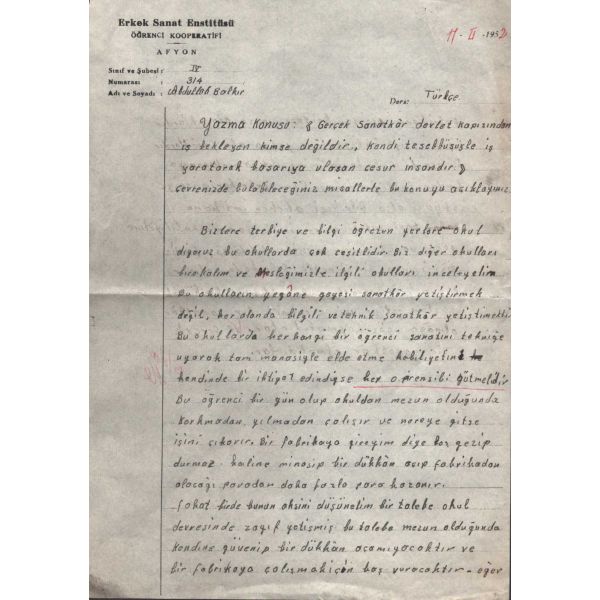 Erkek Sanat Enstitüsü
ÖĞRENCİ KOOPERATİFİ
AFYON
17-II-1952
Sınıf ve Şubesi: IV
Numarası: 314
Adı ve Soyadı: Abdullah Balkır
Ders: Türkçe
Yazma Konusu: Gerçek Sanatkâr devlet kapısından
iş bekleyen kimse değildir, kendi teşebbüsüyle iş
yaratarak başarıya ulaşan cesur insandır.
çevrenizde bulabileceğiniz misallerle bu konuyu açıklayınız
Bizlere terbiye ve bilgi öğreten yerlere okul
diyoruz bu okullarda çok çeşitlidir. Biz diğer okulları
bırakalım ve Mesleğimizle ilgili okulları inceleyelim
Bu okulların yegâne gayesi sanatkâr yetiştirmek
değil, her alanda bilgili ve teknik sanatkâr yetiştirmektir
Bu okullarda her hangi bir öğrenci sanatını tekniğe
uyarak tam manasiyle elde etme kabiliyetini
kendinde bir ihtiyat edindiyse her o prensibi gütmelidir
Bu öğrenci bir gün olup okuldan mezun olduğunda
korkmadan yılmadan çalışır ve nereye gitse
işini çıkarır. Bir fabrikaya gireyim diye boş gezip
durmaz. haline minasip bir dükkân açıp fabrikadan
alacağı paradan daha fazla para kazanır.
Fakat birde bunun aksini düşünelim bir talebe okul
devresinde zayıf yetişmiş bu talebe mezun olduğunda
kendine güvenip bir dükkân açamıyacaktır ve
bir fabrikaya çalışmak için baş vuracaktır - eğer